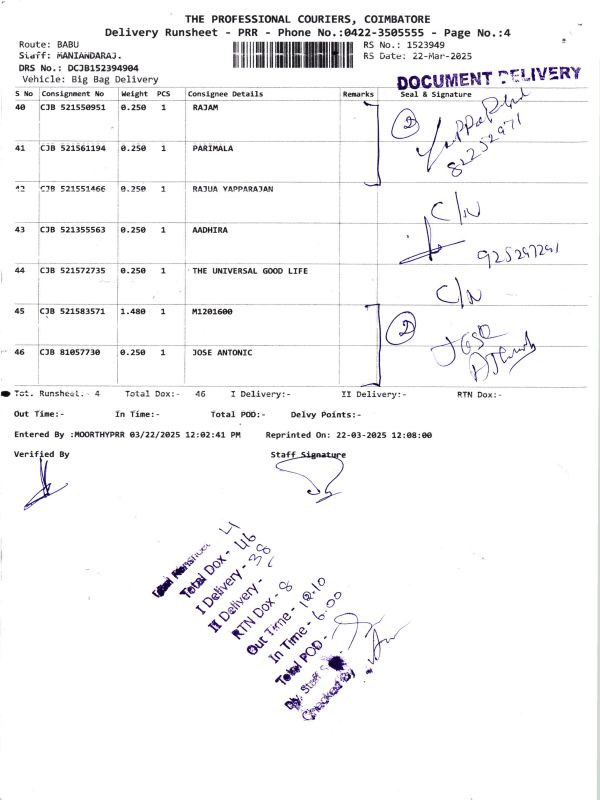 THE PROFESSIONAL COURIERS, COIMBATORE
Delivery Runsheet - PRR - Phone No.:0422-3505555 - Page No.:4
Route: BABU
RS No.: 1523949
Staff: MANIANDARAJ.
RS Date: 22-Mar-2025
DRS No.: DCJB152394904
Vehicle: Big Bag Delivery
DOCUMENT DELIVERY
S No Consignment No Weight PCS Consignee Details Remarks Seal & Signature
40 CJB 521550951 0.250 1 RAJAM
2
82252971
41 CJB 521561194 0.250 1 PARIMALA
42 CJB 521551466 0.250 1 RAJUA YAPPARAJAN
C/N
43 CJB 521355563 0.250 1 AADHIRA
44 CJB 521572735 0.250 1 THE UNIVERSAL GOOD LIFE
C/N
45 CJB 521583571 1.480 1 M1201600
2
46 CJB 81057730 0.250 1 JOSE ANTONIC
Tot. Runsheet. 4 Total Dox:- 46 I Delivery:- II Delivery:- RTN Dox:-
Out Time:- In Time:- Total POD:- Delvy Points:-
Entered By :MOORTHYPRR 03/22/2025 12:02:41 PM Reprinted On: 22-03-2025 12:08:00
Verified By
Staff Signature
Runsheet 4
Total Dox - 46
I Delivery - 38
II Delivery -
RTN Dox - 8
Out Time - 12.10
In Time - 6.00
Total POD -
Dly. Staff
Checked By